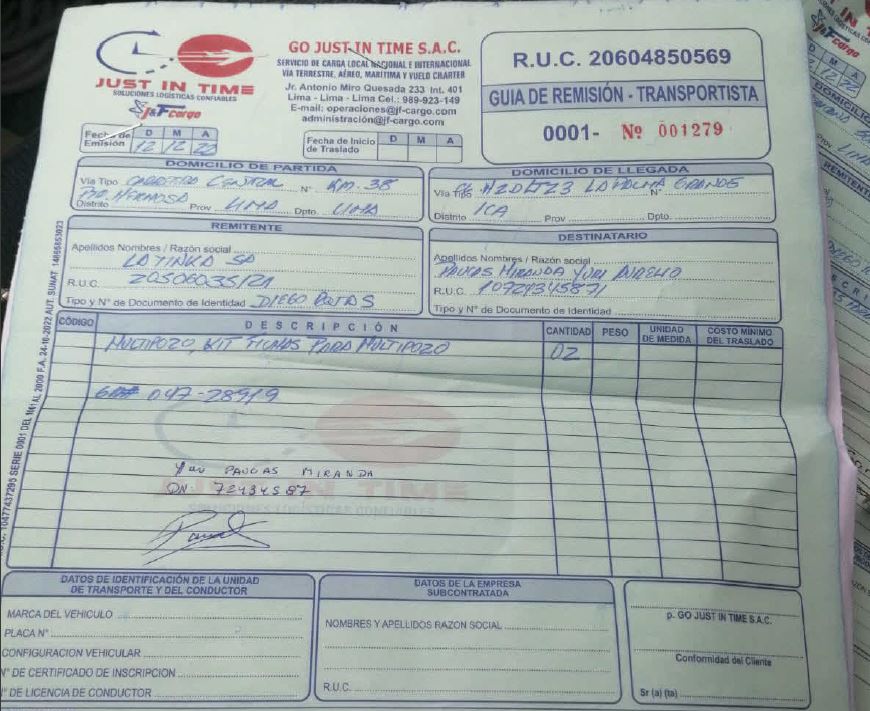 JUST IN TIME
SOLUCIONES LOGÍSTICAS CONFIABLES
J&F cargo
GO JUST IN TIME S.A.C.
SERVICIO DE CARGA LOCAL NACIONAL E INTERNACIONAL
VIA TERRESTRE, AÉREO, MARITIMA Y VUELO CHARTER
Jr. Antonio Miro Quesada 233 Int. 401
Lima - Lima - Lima Cel.: 989-923-149
E-mail: operaciones@jf-cargo.com
administración@jf-cargo.com
R.U.C. 20604850569
GUIA DE REMISIÓN - TRANSPORTISTA
0001- Nº 001279
Fecha de Emisión D M A
12 12 22
Fecha de Inicio de Traslado D M A
DOMICILIO DE PARTIDA
Vía Tipo CARRETERA CENTRAL N° KM. 38
Distrito HERMOSA Prov LIMA Dpto. LIMA
DOMICILIO DE LLEGADA
Vía Tipo LA PALMA GRANDE N°
Distrito ICA Prov Dpto.
REMITENTE
Apellidos Nombres / Razón social
LA TINKA SA
R.U.C. 20506035121
Tipo y N° de Documento de Identidad DIEGO
DESTINATARIO
Apellidos Nombres / Razón social
PAUCAS MIRANDA YURI AURELIO
R.U.C. 10724345871
Tipo y N° de Documento de Identidad
CÓDIGO DESCRIPCIÓN CANTIDAD PESO UNIDAD DE MEDIDA COSTO MÍNIMO DEL TRASLADO
MULTIPOZO, KIT FICHAS PARA MULTIPOZO 02
047-28919
YURI PAUCAS MIRANDA
72434587
JUST IN TIME
SOLUCIONES LOGÍSTICAS CONFIABLES
10477437295 SERIE 0001 DEL 1 AL 2000 F.A. 24-10-2022 AUT. SUNAT 14865853023
DATOS DE IDENTIFICACIÓN DE LA UNIDAD
DE TRANSPORTE Y DEL CONDUCTOR
MARCA DEL VEHICULO
PLACA N°
CONFIGURACION VEHICULAR
N° DE CERTIFICADO DE INSCRIPCION
N° DE LICENCIA DE CONDUCTOR
DATOS DE LA EMPRESA
SUBCONTRATADA
NOMBRES Y APELLIDOS RAZON SOCIAL
R.U.C.
p. GO JUST IN TIME S.A.C.
Conformidad del Cliente
Sr (a) (ta)